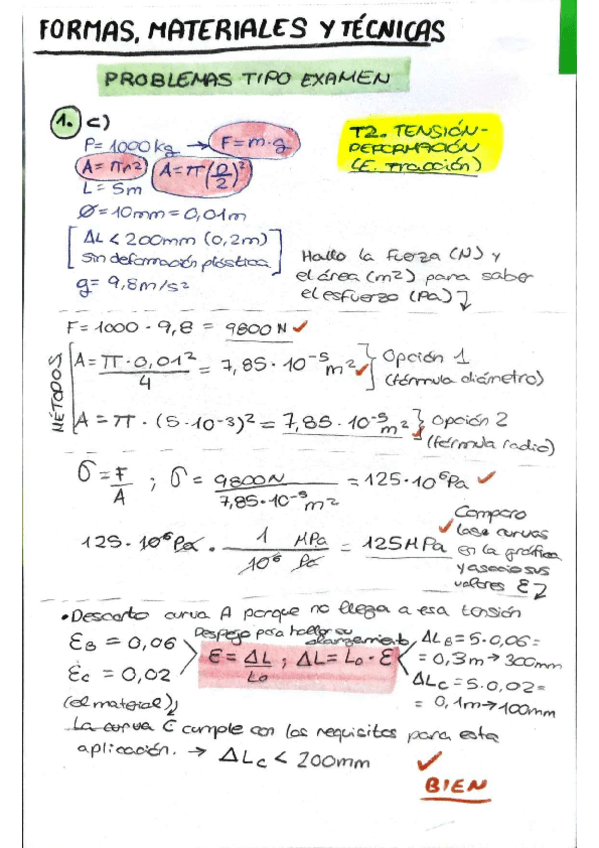 FORMAS, MATERIALES Y TÉCNICAS
PROBLEMAS TIPO EXAMEN
1. c)
P = 1000 kg → F = m·g
A = πr² A = π(D/2)²
L = 5m
Ø = 10mm = 0,01m
[ΔL < 200mm (0,2m)
Sin deformación plástica]
g = 9,8 m/s²
T2. TENSIÓN-
DEFORMACIÓN
(E. Tracción)
Hallo la fuerza (N) y
el área (m²) para saber
el esfuerzo (Pa)
F = 1000 · 9,8 = 9800 N ✓
MÉTODOS
A = π · 0,01² / 4 = 7,85 · 10⁻⁵ m² ✓ } Opción 1
(fórmula diámetro)
A = π · (5·10-³)² = 7,85 · 10⁻⁵ m² ✓ } Opción 2
(fórmula radio)
σ = F/A ; σ = 9800N / 7,85·10⁻⁵ m² = 125·10⁶ Pa ✓
125 · 10⁶ Pa · 1 MPa / 10⁶ Pa = 125 MPa ✓
Comparo
las curvas
en la gráfica
y asocio sus
valores Ɛ
• Descarto curva A porque no llega a esa tensión
ƐB = 0,06
ƐC = 0,02
Despejo para hallar su
alargamiento
Ɛ = ΔL/L₀ ; ΔL = L₀ · Ɛ
ΔLB = 5·0,06 =
= 0,3m → 300mm
ΔLC = 5·0,02 =
= 0,1m → 100mm
(el material)
La curva C cumple con los requisitos para esta
aplicación. → ΔLC < 200mm
✓
BIEN